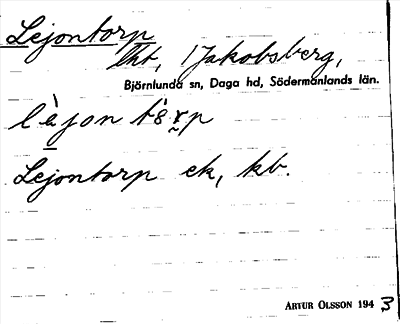 Lejontorp
lht, Jakobsberg,
Björnlunda sn, Daga hd, Södermanlands län.
Lejontorp ek, kb.
ARTUR OLSSON 1943